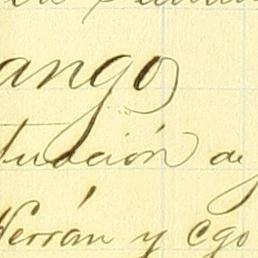 ango
tuación de
Herrán y Cgo